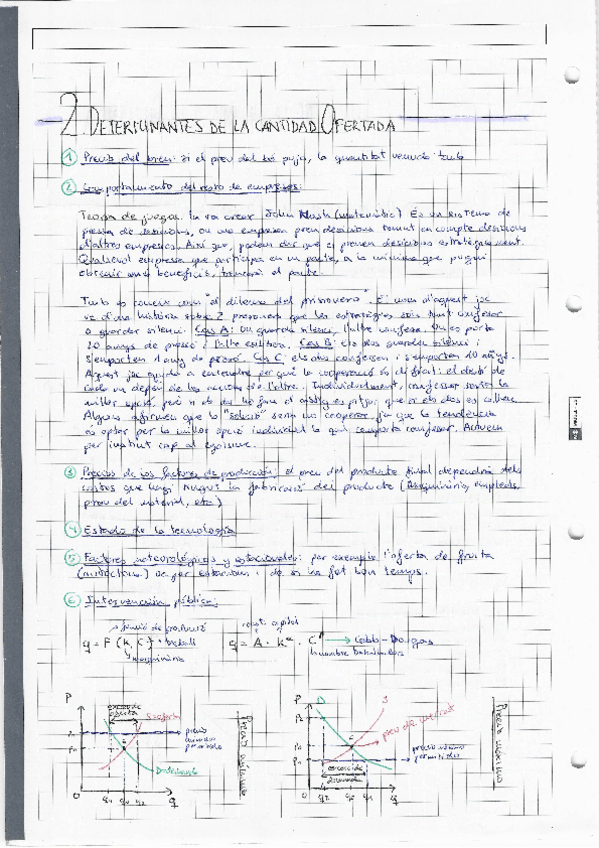 2. DETERMINANTES DE LA CANTIDAD OFERTADA
1 Precio del bien: si el preu del bé puja, la quantitat venuda tmb
2 Comportamiento del resto de empresas:
Teoria de juegos: la va crear John Nash (matemàtic) És un sistema de
presa de decisions, on una empresa pren decisions tenint en compte decisions
d'altres empreses. Així per, podem dir que es prenen decisions estratègicament.
Qualsevol empresa que participa en un pacte, a la mínima que pugui
obtenir més benefici, trencarà el pacte.
Tmb es coneix com "el dilema del prisionero". El nom d'aquest joc
ve d'una història sobre 2 presoners que les estratègies són tant confesar
o guardar silenci. Cas A: Un guarda silenci, l'altre confesa. Un es porta
20 anys de presó i l'altre . Cas B: els dos guarden silenci i
s'emporten 1 any de presó. Cas C: els dos confessen i s'emporten 10 anys.
Aquest joc ajuda a entendre per què la cooperació és difícil: el destí de
cada un depèn de les accions de l'altre. Individualment, confesar sembla la
millor opció, però si els dos ho fan el càstig és pitjor que si els dos es callen.
Alguns afirmen que la "solució" seria cooperar ja que la tendència
és optar per la millor opció individual la qual comporta confesar. Actuem
per instint cap al egoisme.
3 Precios de los factores de producción: el preu del producte final dependrà dels
costos que hagi la fabricació del producte (maquinària, empleats,
preu del material, etc)
4 Estado de la tecnología
5 Factores meteorológicos y estacionales: per exemple l'oferta de fruita
(melocotons) va per estacions i de si ha fet bon temps.
6 Intervención pública:
funció de producció
q = F (K, L) treball
maquinària
q = A · K^α · L^β → Cobb-Douglas
P
exceso de oferta
S oferta
precio mínimo permitido
Demanda
0 q1 q0 q2 q
Precio mínimo
P
D
S
preu de mercat
precio máximo permitido
exceso de demanda
0 q2 q0 q1 q
Precio máximo